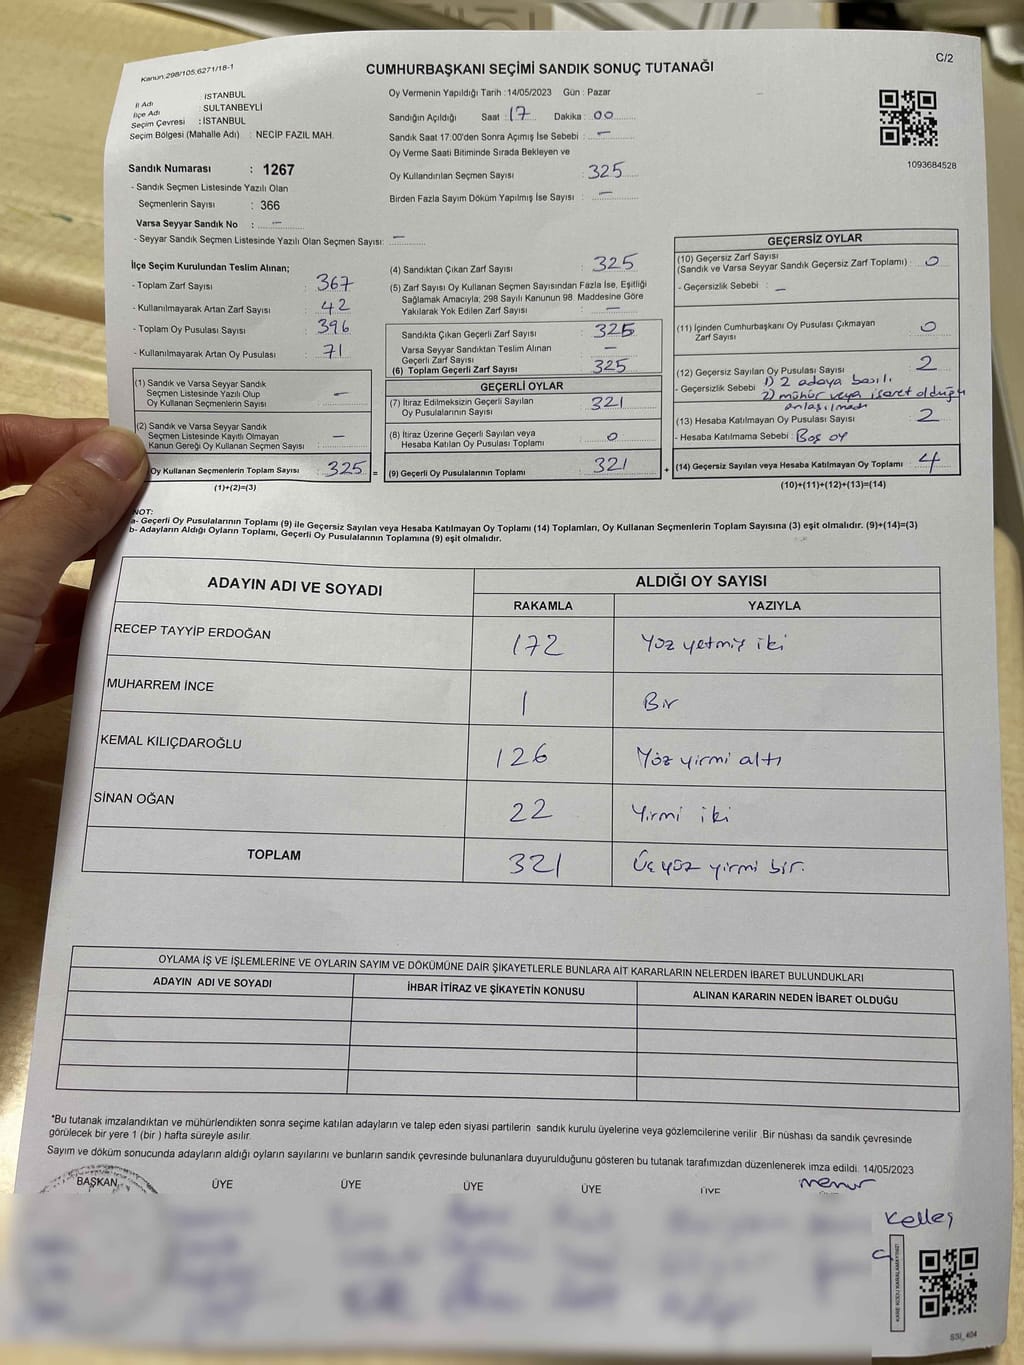 Kanun:298/105,6271/18-1
CUMHURBAŞKANI SEÇİMİ SANDIK SONUÇ TUTANAĞI
C/2
İl Adı : İSTANBUL
İlçe Adı : SULTANBEYLİ
Seçim Çevresi : İSTANBUL
Seçim Bölgesi (Mahalle Adı) : NECİP FAZIL MAH.
Sandık Numarası : 1267
- Sandık Seçmen Listesinde Yazılı Olan
Seçmenlerin Sayısı : 366
Varsa Seyyar Sandık No : –
- Seyyar Sandık Seçmen Listesinde Yazılı Olan Seçmen Sayısı: –
Oy Vermenin Yapıldığı Tarih : 14/05/2023 Gün : Pazar
Sandığın Açıldığı Saat : 17 Dakika : 00
Sandık Saat 17:00'den Sonra Açımış İse Sebebi : –
Oy Verme Saati Bitiminde Sırada Bekleyen ve
Oy Kullandırılan Seçmen Sayısı : 325
Birden Fazla Sayım Döküm Yapılmış İse Sayısı : –
1093684528
İlçe Seçim Kurulundan Teslim Alınan;
- Toplam Zarf Sayısı : 367
- Kullanılmayarak Artan Zarf Sayısı : 42
- Toplam Oy Pusulası Sayısı : 396
- Kullanılmayarak Artan Oy Pusulası : 71
(1) Sandık ve Varsa Seyyar Sandık
Seçmen Listesinde Yazılı Olup
Oy Kullanan Seçmenlerin Sayısı : –
(2) Sandık ve Varsa Seyyar Sandık
Seçmen Listesinde Kayıtlı Olmayan
Kanun Gereği Oy Kullanan Seçmen Sayısı : –
Oy Kullanan Seçmenlerin Toplam Sayısı : 325 =
(1)+(2)=(3)
(4) Sandıktan Çıkan Zarf Sayısı : 325
(5) Zarf Sayısı Oy Kullanan Seçmen Sayısından Fazla İse, Eşitliği
Sağlamak Amacıyla; 298 Sayılı Kanunun 98. Maddesine Göre
Yakılarak Yok Edilen Zarf Sayısı : –
Sandıkta Çıkan Geçerli Zarf Sayısı : 325
Varsa Seyyar Sandıktan Teslim Alınan
Geçerli Zarf Sayısı : –
(6) Toplam Geçerli Zarf Sayısı : 325
GEÇERLİ OYLAR
(7) İtiraz Edilmeksizin Geçerli Sayılan
Oy Pusulalarının Sayısı : 321
(8) İtiraz Üzerine Geçerli Sayılan veya
Hesaba Katılan Oy Pusulası Toplamı : 0
(9) Geçerli Oy Pusulalarının Toplamı : 321 +
GEÇERSİZ OYLAR
(10) Geçersiz Zarf Sayısı
(Sandık ve Varsa Seyyar Sandık Geçersiz Zarf Toplamı) : 0
- Geçersizlik Sebebi : –
(11) İçinden Cumhurbaşkanı Oy Pusulası Çıkmayan
Zarf Sayısı : 0
(12) Geçersiz Sayılan Oy Pusulası Sayısı : 2
- Geçersizlik Sebebi : 1) 2 adaya basılı
2) mühür veya işaret olduğu
anlaşılmadı
(13) Hesaba Katılmayan Oy Pusulası Sayısı : 2
- Hesaba Katılmama Sebebi : Boş oy
(14) Geçersiz Sayılan veya Hesaba Katılmayan Oy Toplamı : 4
(10)+(11)+(12)+(13)=(14)
NOT:
a- Geçerli Oy Pusulalarının Toplamı (9) ile Geçersiz Sayılan veya Hesaba Katılmayan Oy Toplamı (14) Toplamları, Oy Kullanan Seçmenlerin Toplam Sayısına (3) eşit olmalıdır. (9)+(14)=(3)
b- Adayların Aldığı Oyların Toplamı, Geçerli Oy Pusulalarının Toplamına (9) eşit olmalıdır.
ADAYIN ADI VE SOYADI
ALDIĞI OY SAYISI
RAKAMLA YAZIYLA
RECEP TAYYİP ERDOĞAN 172 Yüz yetmiş iki
MUHARREM İNCE 1 Bir
KEMAL KILIÇDAROĞLU 126 Yüz yirmi altı
SİNAN OĞAN 22 Yirmi iki
TOPLAM 321 Üç yüz yirmi bir.
OYLAMA İŞ VE İŞLEMLERİNE VE OYLARIN SAYIM VE DÖKÜMÜNE DAİR ŞİKAYETLERLE BUNLARA AİT KARARLARIN NELERDEN İBARET BULUNDUKLARI
ADAYIN ADI VE SOYADI İHBAR İTİRAZ VE ŞİKAYETİN KONUSU ALINAN KARARIN NEDEN İBARET OLDUĞU
*Bu tutanak imzalandıktan ve mühürlendikten sonra seçime katılan adayların ve talep eden siyasi partilerin sandık kurulu üyelerine veya gözlemcilerine verilir .Bir nüshası da sandık çevresinde
görülecek bir yere 1 (bir ) hafta süreyle asılır.
Sayım ve döküm sonucunda adayların aldığı oyların sayılarını ve bunların sandık çevresinde bulunanlara duyurulduğunu gösteren bu tutanak tarafımızdan düzenlenerek imza edildi. 14/05/2023
BAŞKAN ÜYE ÜYE ÜYE ÜYE ÜYE memur
Keleş
KARE KODU KARALAMAYINIZ!
SSI_404